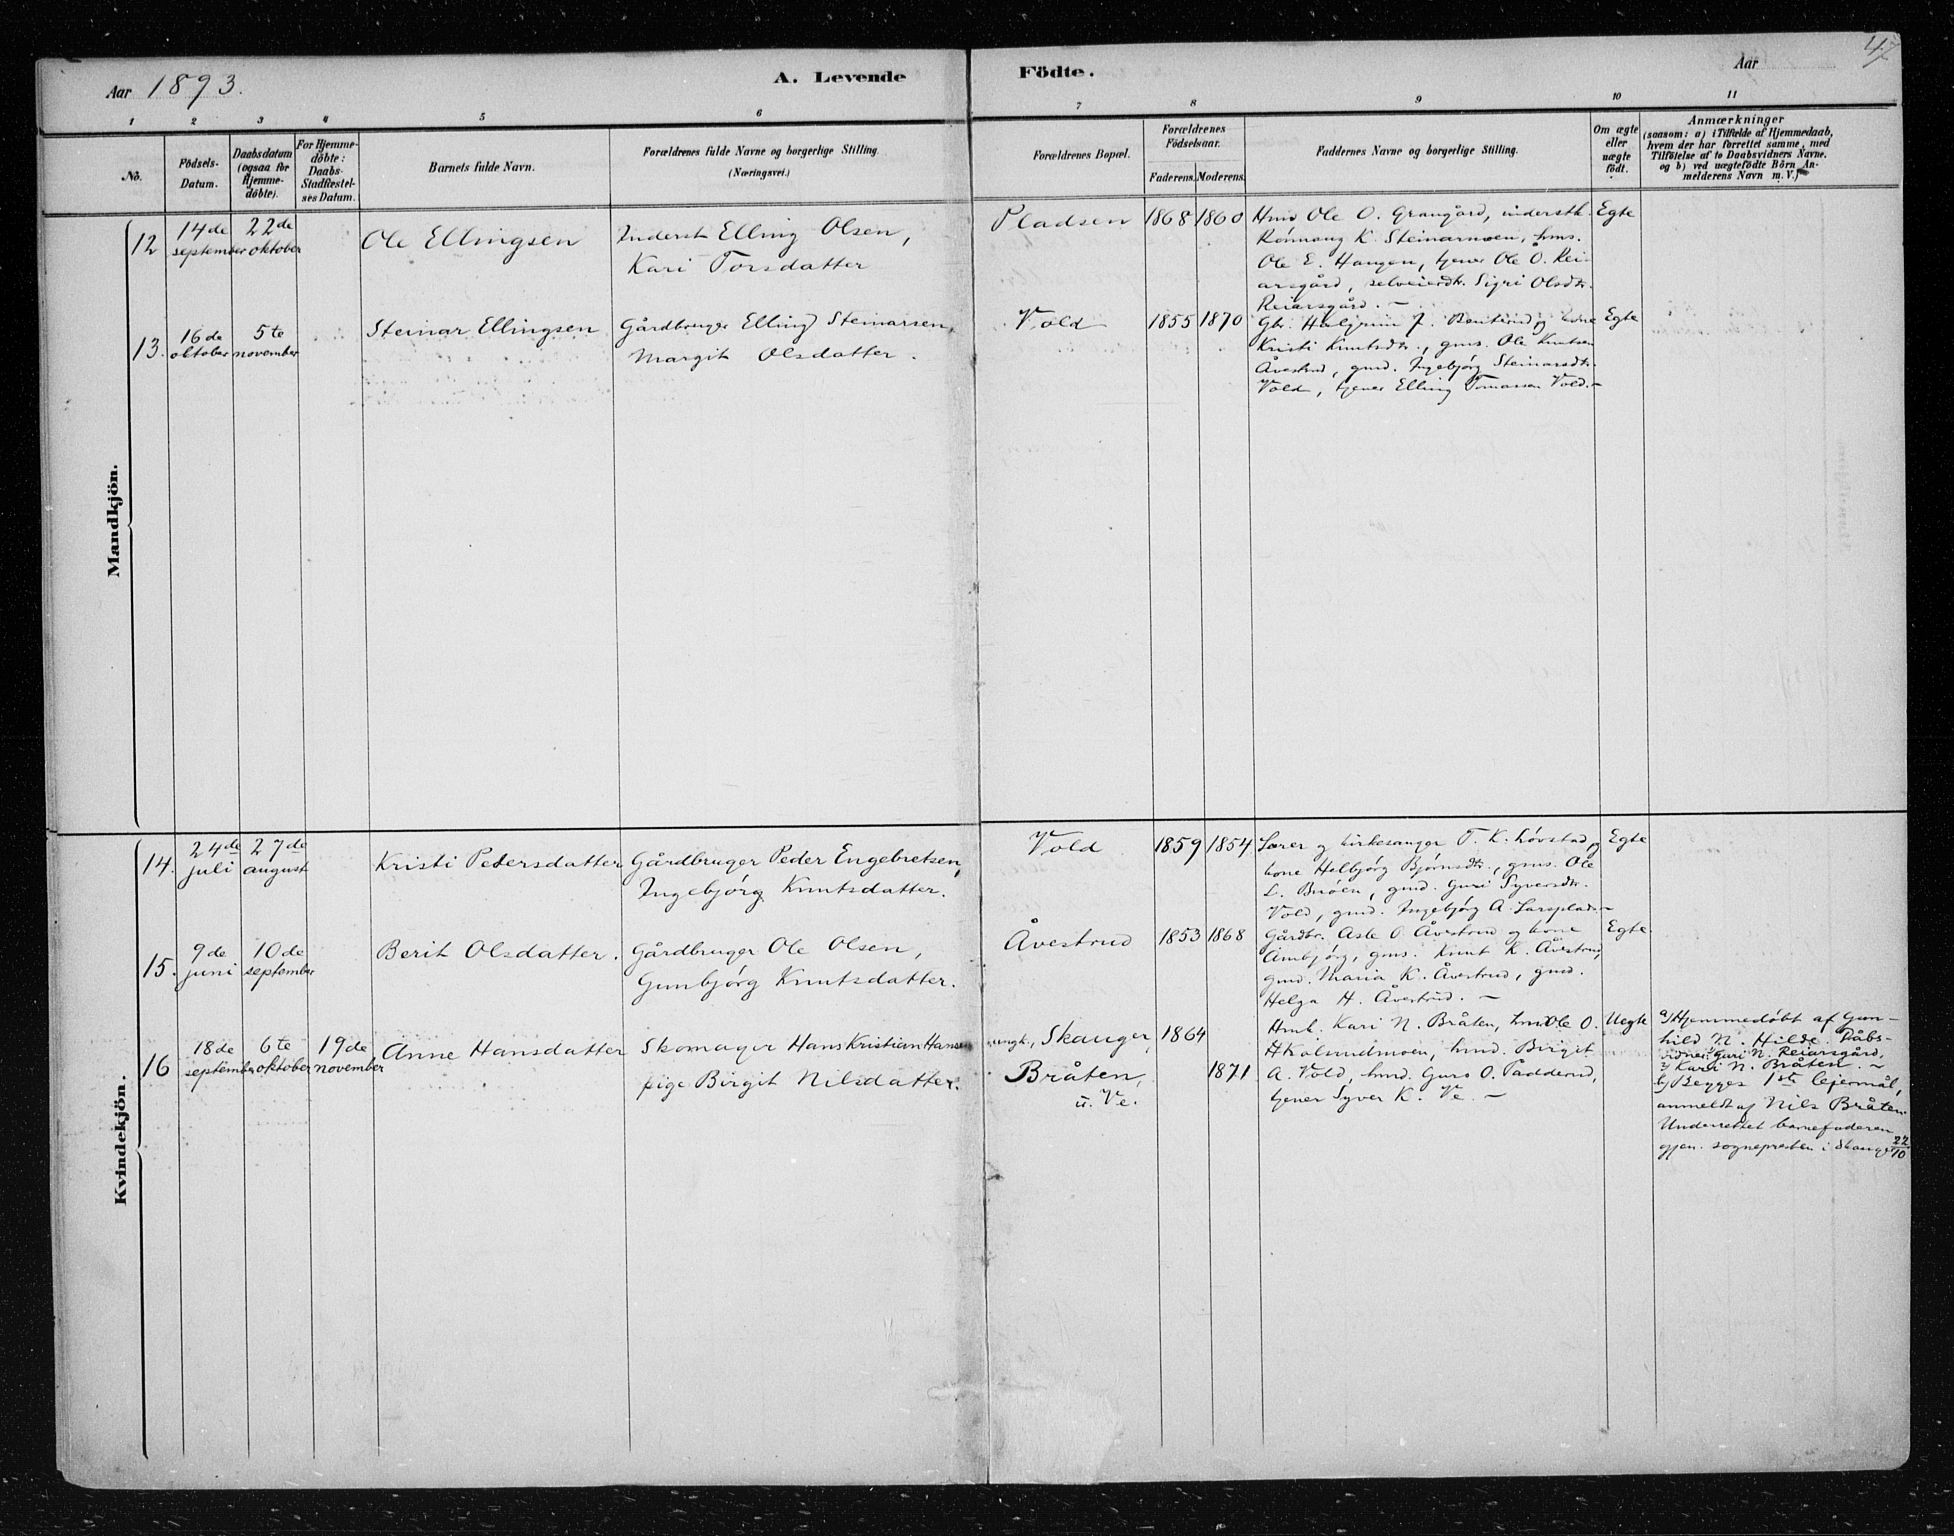 47
Aar 1893.
A. Levende Födte.
Aar
1 2 3 4 5 6 7 8 9 10 11
No.
Födsels-Datum.
Daabsdatum (ogsaa for Hjemmedöbte).
For Hjemmedöbte: Daabs-Stadfæstelses Datum.
Barnets fulde Navn.
Forældrenes fulde Navne og borgerlige Stilling.
(Næringsvei.)
Forældrenes Bopæl.
Forældrenes Födselsaar.
Faderens. Moderens.
Faddernes Navne og borgerlige Stilling.
Om ægte eller uægte födt.
Anmærkninger
(saasom: a) i Tilfælde af Hjemmedaab, hvem der har forrettet samme, med Tilföielse af to Daabsvidners Navne, og b) ved uægtefödte Börn Anmelderens Navn m. V.)
Mandkjön.
12 14de september 22de oktober Ole Ellingsen Inderst Elling Olsen,
Kari Torsdatter
Pladsen 1868 1860 Hmd Ole O. Grangård, inderstk. Egte
Rönnaug K. Steinarmoen, hms.
Ole E. Haugen, tjener Ole O. Rei-
arsgård, selveierdtr. Sigri Olsdtr.
Reiarsgård. —
13. 16de oktober 5te november Steinar Ellingsen Gårdbruger Elling Steinarsen,
Margit Olsdatter.
Vold 1855 1870 Gbr. Hallgrim J. og kone Egte
Kristi Knutsdtr., gms. Ole Knutsen
Åvestrud, gmd. Ingebjörg Steinarsdtr.
Vold, tjener Elling Tomassen Vold. —
Kvindekjön.
14. 24de juli 27de august Kristi Pedersdatter Gårdbruger Peder Engebretsen,
Ingebjörg Knutsdatter.
Vold 1859 1854 Lærer og kirkesanger T. K. Lövstad, og Egte
kone Helbjörg Björnsdtr., gms. Ole
L. Bröen, gmd. Guri Syversdtr.
Vold, gmd. Ingebjörg A. Larsplads. —
15. 9de juni 10de september Berit Olsdatter. Gårdbruger Ole Olsen,
Gunbjörg Knutsdatter.
Åvestrud 1853 1868 Gårdbr. Asle O. Åvestrud og kone Egte
Gunbjörg, gms. Knut K. Åvestrud,
gmd. Maria K. Åvestrud, gmd.
Helga H. Åvestrud. —
16 18de september 6te oktober 19de november Anne Hansdatter Skomager Hans Kristian Hansen
pige Birgit Nilsdatter.
ungk., Skauger, 1864
Bråten, 1871
u. Ve.
Hmk. Kari N. Bråten, hmd Ole O. Uegte
Hkolundmoen, hmd. Birgit
A. Vold, hmd. Guro O. Padderud,
tjener Syver K. Ve. —
a) Hjemmedöbt af Gun-
hild N. Hilde. Dåbs-
vidner: Guri N. Reiarsgård,
Kari N. Bråten. —
b) Begges 1ste lejermål,
anmeldt af Nils Bråten.
Underrettet barnefaderen
gjen. sognepresten i Skauger 22/10